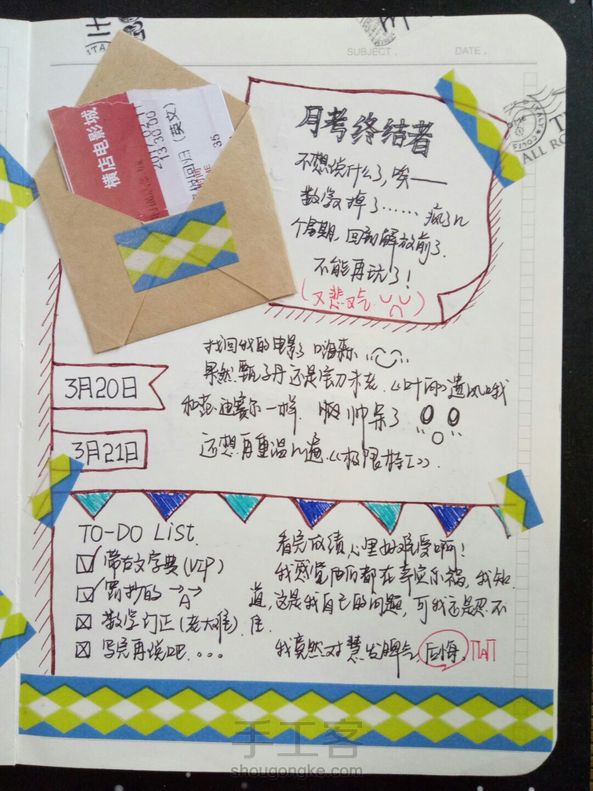 SUBJECT.
DATE.
横店电影城
(英文)
35
ALL RO
月考终结者
不想说什么了,唉——
数学又掉了…… 疯了n
个星期,回到解放前了.
不能再玩了!
(又悲又气
找回我的电影票 嗨森
果然甄子丹还是宝刀未老,《叶问》遗风
和范·迪塞尔一样, 帅呆了
3月20日
3月21日
还想再重温n遍《极限特工》.
TO-DO LIST.
带古文字典(VIP)
A
数学订正(老大难)
写完再说吧....
看完成绩心里好难受啊!
我感觉
我知
道,这是我自己的问题,可我还是忍不
住.
我竟然对慧发脾气,后悔.
手工客
shougongke.com